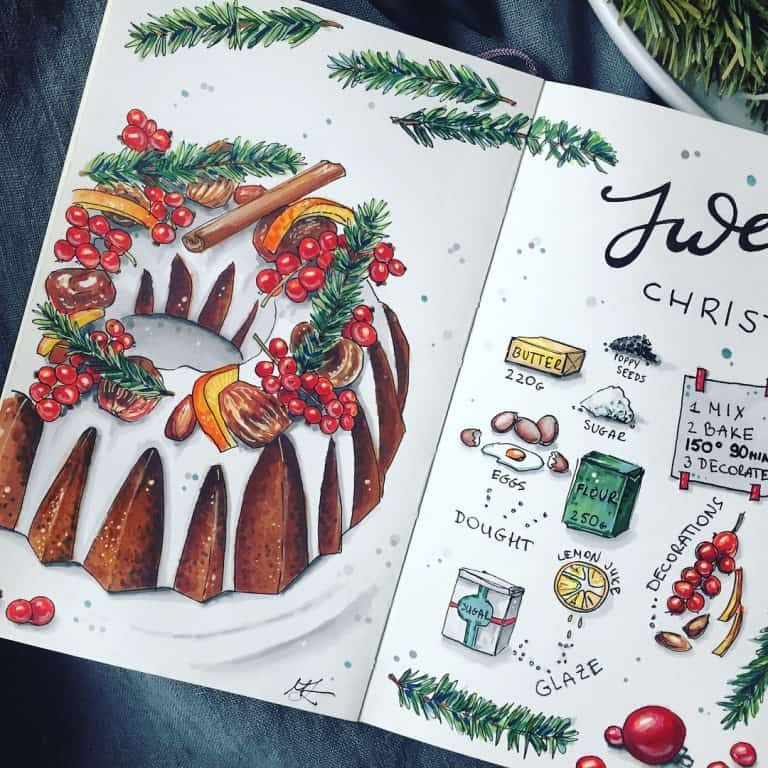 Swe
CHRIST
BUTTER
220G
POPPY
SEEDS
SUGAR
1 MIX
2 BAKE
150° 90MIN
3 DECORATE
EGGS
FLOUR
250G
DOUGHT
DECORATIONS
LEMON JUKE
SUGAR
GLAZE